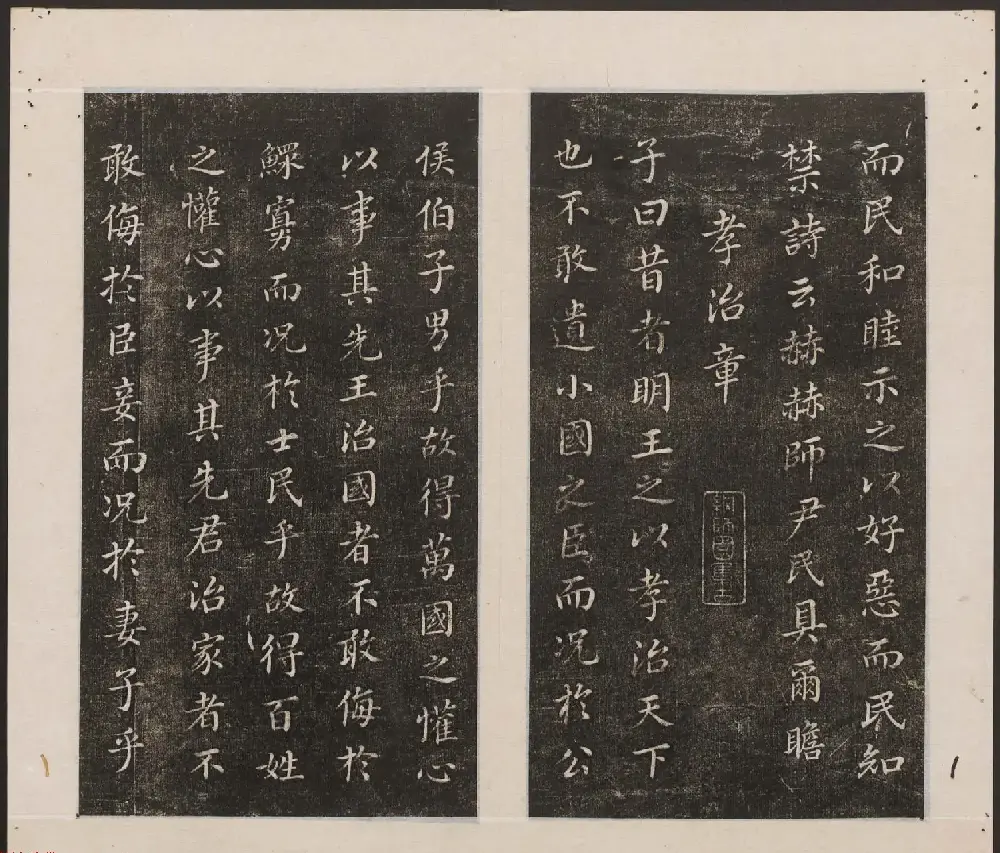 而民和睦示之以好惡而民知
禁詩云赫赫師尹民具爾瞻
孝治章
子曰昔者明王之以孝治天下
也不敢遺小國之臣而況於公
侯伯子男乎故得萬國之懽心
以事其先王治國者不敢侮於
鰥寡而況於士民乎故得百姓
之懽心以事其先君治家者不
敢侮於臣妾而況於妻子乎